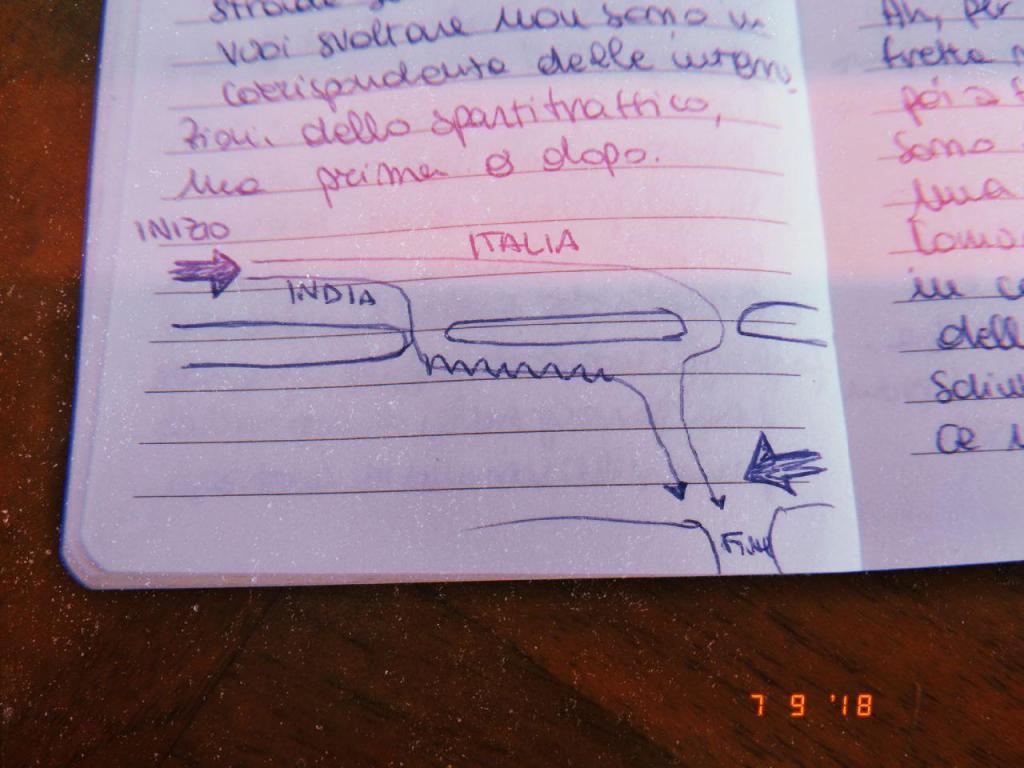 strade
vuoi svoltare non sono
corrispondenta delle interru
zioni dello spartitraffico,
ma prima o dopo.
INIZIO
ITALIA
INDIA
FINE
Ah, per
fretta
poi
sono
una
in
dell
ce
7 9 '18